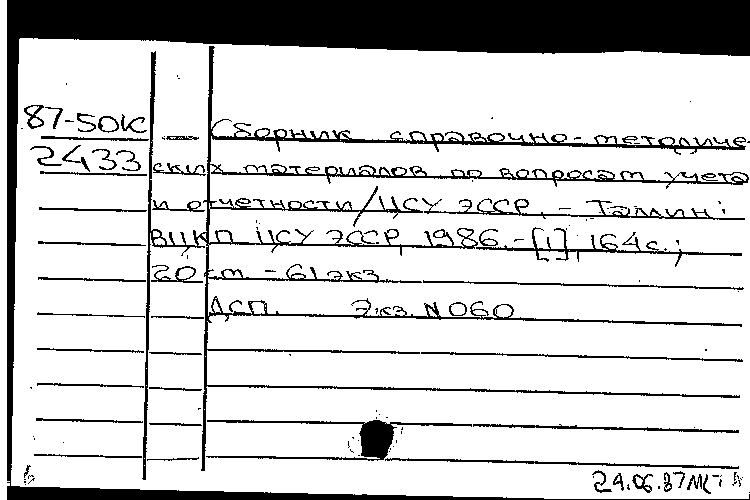 87-50К — Сборник справочно-методиче-
2433 ских материалов по вопросам учета
и отчетности/ЦСУ ЭССР. – Таллин:
ВЦКП ЦСУ ЭССР, 1986.-[1], 164с.;
20 см. – 61 экз.
ДСП. Экз. N 060
24.06.87